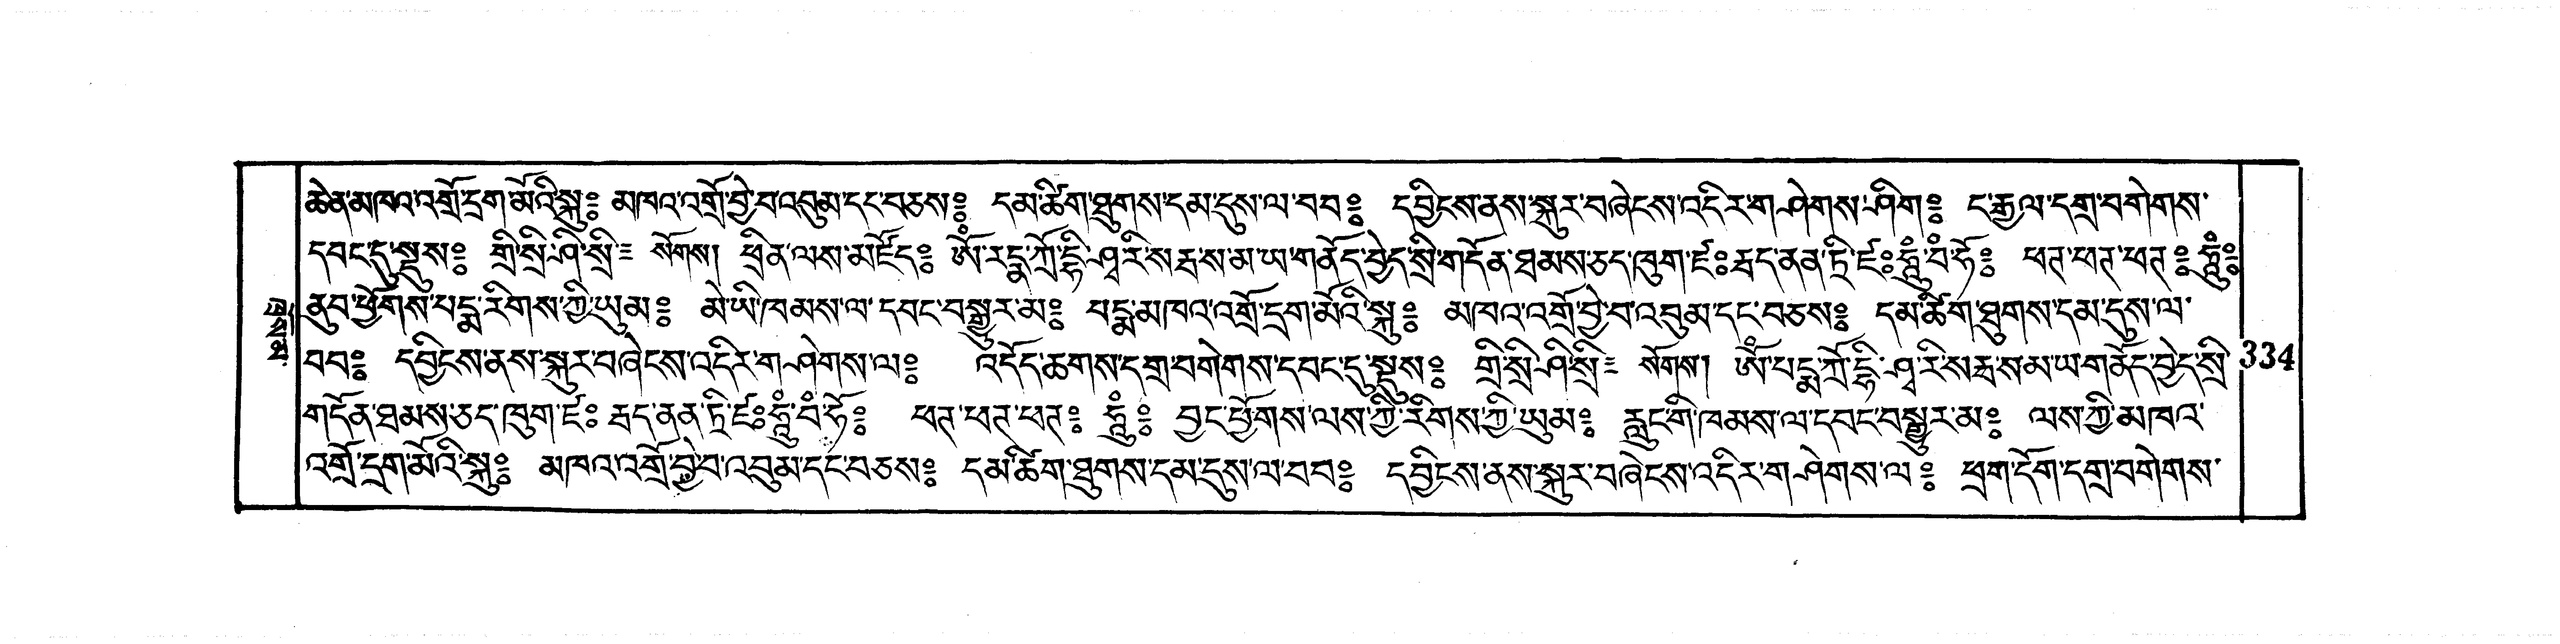 ཆེན་མཁའ་འགྲོ་དྲག་མོའི་སྐུ༔ མཁའ་འགྲོ་བྱེ་བ་འབུམ་དང་བཅས༔ དམ་ཚིག་ཐུགས་དམ་དུས་ལ་བབ༔ དབྱིངས་ནས་སྐུར་བཞེངས་འདིར་གཤེགས་ཤིག༔ ང་རྒྱལ་དགྲ་བགེགས་
དབང་དུ་སྡུས༔ གྲི་སྲི་ཤི་སྲི༴ སོགས། ཕྲིན་ལས་མཛོད༔ ཨོཾ་རཏྣ་ཀྲོ་དྷི་ཤྭ་རི་ས་རྦ་ས་མ་ཡ་གནོད་བྱེད་སྲི་གདོན་ཐམས་ཅད་ཁུག་ཛཿ རྦད་ནན་ཏྲི་ཛཿ ཧཱུྃ་བཾ་ཧོ༔ ཕཊ་ཕཊ་ཕཊ༔ ཧཱུྃ༔
ནུབ་ཕྱོགས་པདྨ་རིགས་ཀྱི་ཡུམ༔ མེ་ཡི་ཁམས་ལ་དབང་བསྒྱུར་མ༔ པདྨ་མཁའ་འགྲོ་དྲག་མོའི་སྐུ༔ མཁའ་འགྲོ་བྱེ་བ་འབུམ་དང་བཅས༔ དམ་ཚིག་ཐུགས་དམ་དུས་ལ་
བབ༔ དབྱིངས་ནས་སྐུར་བཞེངས་འདིར་གཤེགས་ལ༔ འདོད་ཆགས་དགྲ་བགེགས་དབང་དུ་སྡུས༔ གྲི་སྲི་ཤི་སྲི༴ སོགས། ཨོཾ་པདྨ་ཀྲོ་དྷི་ཤྭ་རི་ས་རྦ་ས་མ་ཡ་གནོད་བྱེད་སྲི
334
གདོན་ཐམས་ཅད་ཁུག་ཛཿ རྦད་ནན་ཏྲི་ཛཿ ཧཱུྃ་བཾ་ཧོ༔ ཕཊ་ཕཊ་ཕཊ༔ ཧཱུྃ༔ བྱང་ཕྱོགས་ལས་ཀྱི་རིགས་ཀྱི་ཡུམ༔ རླུང་གི་ཁམས་ལ་དབང་བསྒྱུར་མ༔ ལས་ཀྱི་མཁའ་
འགྲོ་དྲག་མོའི་སྐུ༔ མཁའ་འགྲོ་བྱེ་བ་འབུམ་དང་བཅས༔ དམ་ཚིག་ཐུགས་དམ་དུས་ལ་བབ༔ དབྱིངས་ནས་སྐུར་བཞེངས་འདིར་གཤེགས་ལ༔ ཕྲག་དོག་དགྲ་བགེགས་